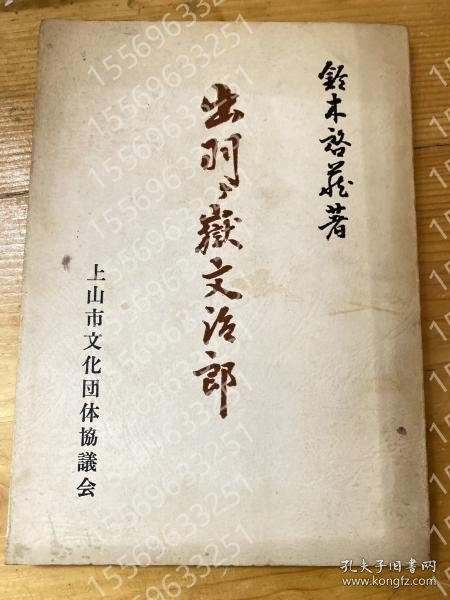 鈴木啓蔵著
出羽ヶ嶽文治郎
上山市文化団体協議会
15569633251
孔夫子旧书网
www.kongfz.com